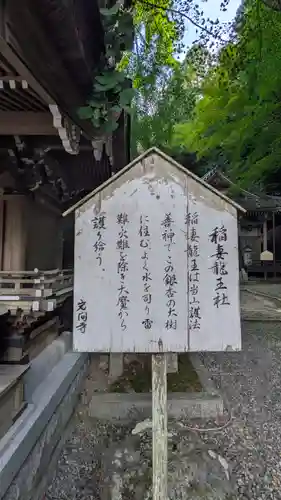 稲妻龍王社
稲妻龍王は当山護法
善神でこの銀杏の大樹
に住むよく水を司り雷
難火難を除き大魔から
護り給う。
光前寺